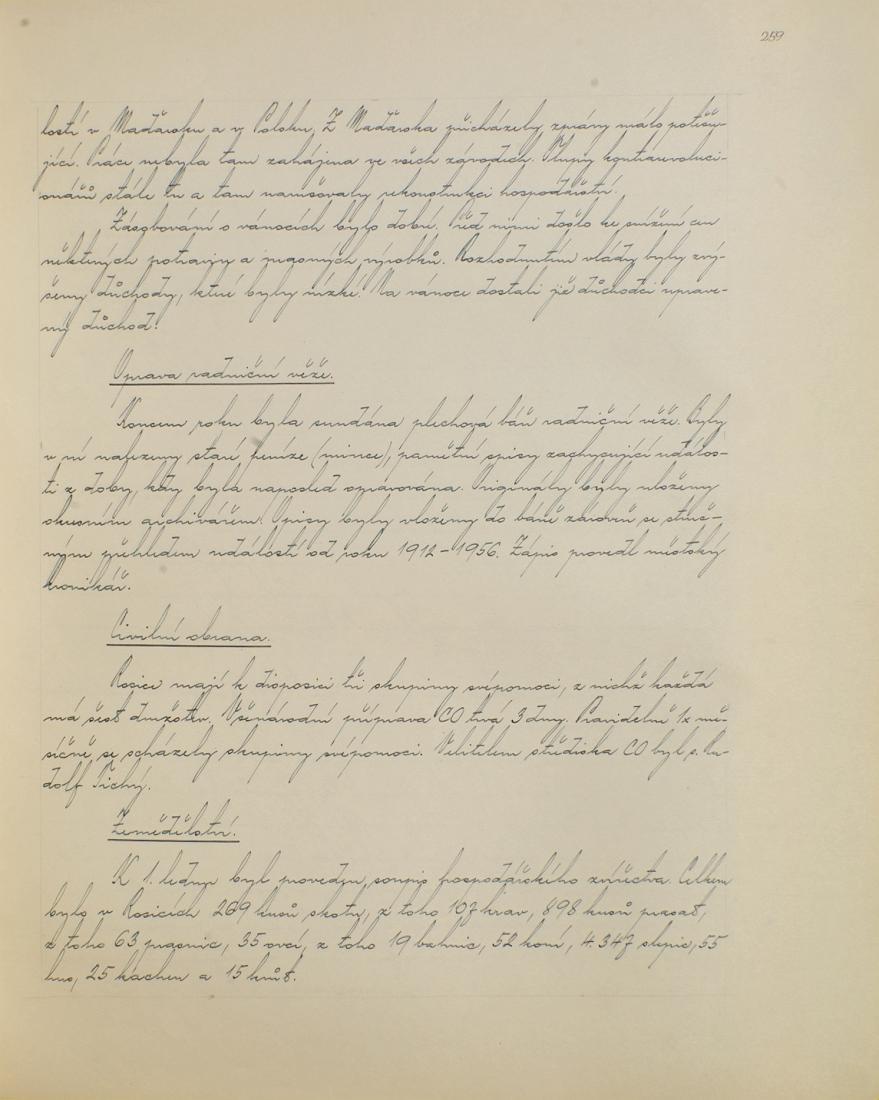 259
lostí v Maďarsku a v Polsku. Z Maďarska přicházely zprávy málo potěšu-
jící. Práce nebyla tam zahájena ve všech závodech. Skupiny kontrarevoluci-
onářů stále tu a tam narušovaly rekonstrukci hospodářství.
Zásobování o vánocích bylo dobré. Před nimi došlo ke snížení cen
některých potravin a průmyslových výrobků. Rozhodnutím vlády byly zvý-
šeny důchody, které byly nízké. Na vánoce dostali již důchodci uprave-
ný důchod.
Oprava radniční věže.
Koncem roku byla sundána plechová báň radniční věže. Byly
v ní nalezeny staré peníze (mince), pamětní spisy zachycující událos-
ti z doby, kdy byla naposled opravována. Originály byly uloženy
okresním archivářem. Opisy byly vloženy do báně zároveň se struč-
ným přehledem událostí od roku 1912-1956. Zápis provedl městský
kronikář.
Civilní obrana.
Rosice mají k disposici tři skupiny svépomoci, z nichž každá
má šest družstev. Všenárodní příprava CO trvá 3 dny. Pravidelně 1x mě-
síčně se scházely skupiny svépomoci. Velitelem střediska CO byl s. Ru-
dolf Tichý.
Zemědělství.
K 1. lednu byl proveden soupis hospodářského zvířectva. Celkem
bylo v Rosicích 269 kusů skotu, z toho 107 krav, 898 kusů prasat,
z toho 63 prasnic, 35 ovcí, z toho 19 bahnic, 52 koní, 4.347 slepic, 55
hus, 25 kachen a 15 krůt.